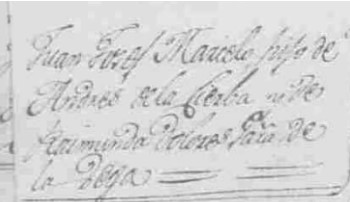 Juan Josef Mariclo hijo de
Andres de la Cierba y de
Raimunda Dolores Gara de
la Vega